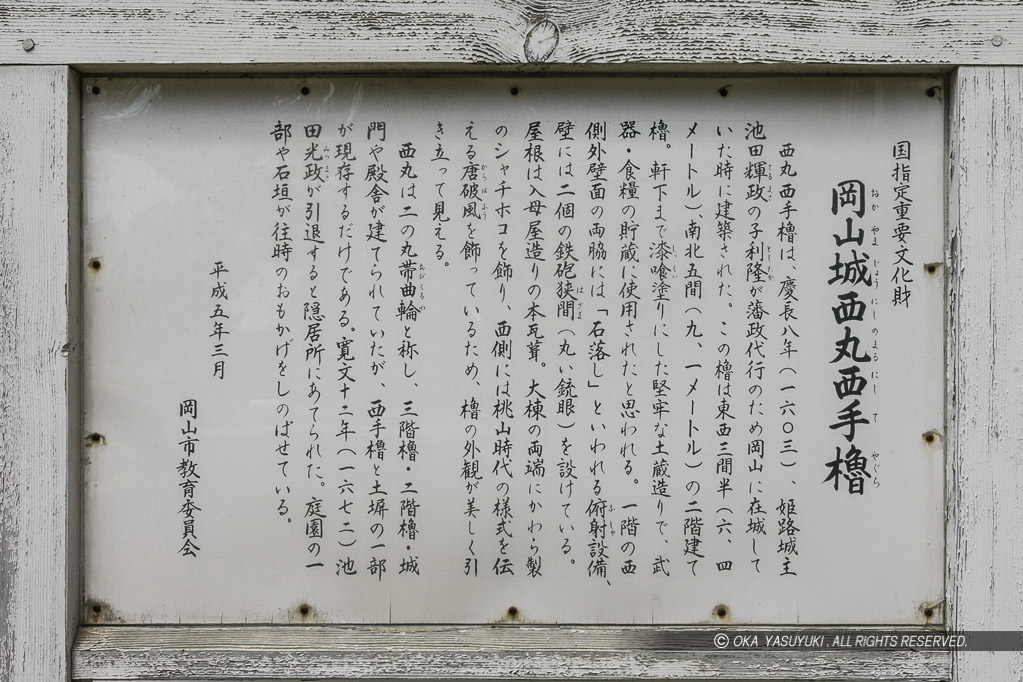 国指定重要文化財
岡山城西丸西手櫓
おか やま じょう にしのまる にし て やぐら
西丸西手櫓は、慶長八年（一六〇三）、姫路城主
池田輝政の子利隆が藩政代行のため岡山に在城して
てるまさ としたか
いた時に建築された。この櫓は東西三間半（六、四
メートル）、南北五間（九、一メートル）の二階建て
櫓。軒下まで漆喰塗りにした堅牢な土蔵造りで、武
しっくい
器・食糧の貯蔵に使用されたと思われる。一階の西
側外壁面の両脇には「石落し」といわれる俯射設備、
ふしゃ
壁には二個の鉄砲狭間（丸い銃眼）を設けている。
はざま
屋根は入母屋造りの本瓦葺。大棟の両端にかわら製
のシャチホコを飾り、西側には桃山時代の様式を伝
える唐破風を飾っているため、櫓の外観が美しく引
からはふう
き立って見える。
西丸は二の丸帯曲輪と称し、三階櫓・二階櫓・城
おびくるわ
門や殿舎が建てられていたが、西手櫓と土塀の一部
が現存するだけである。寛文十二年（一六七二）池
田光政が引退すると隠居所にあてられた。庭園の一
みつまさ
部や石垣が往時のおもかげをしのばせている。
平成五年三月
岡山市教育委員会
© OKA YASUYUKI. ALL RIGHTS RESERVED.